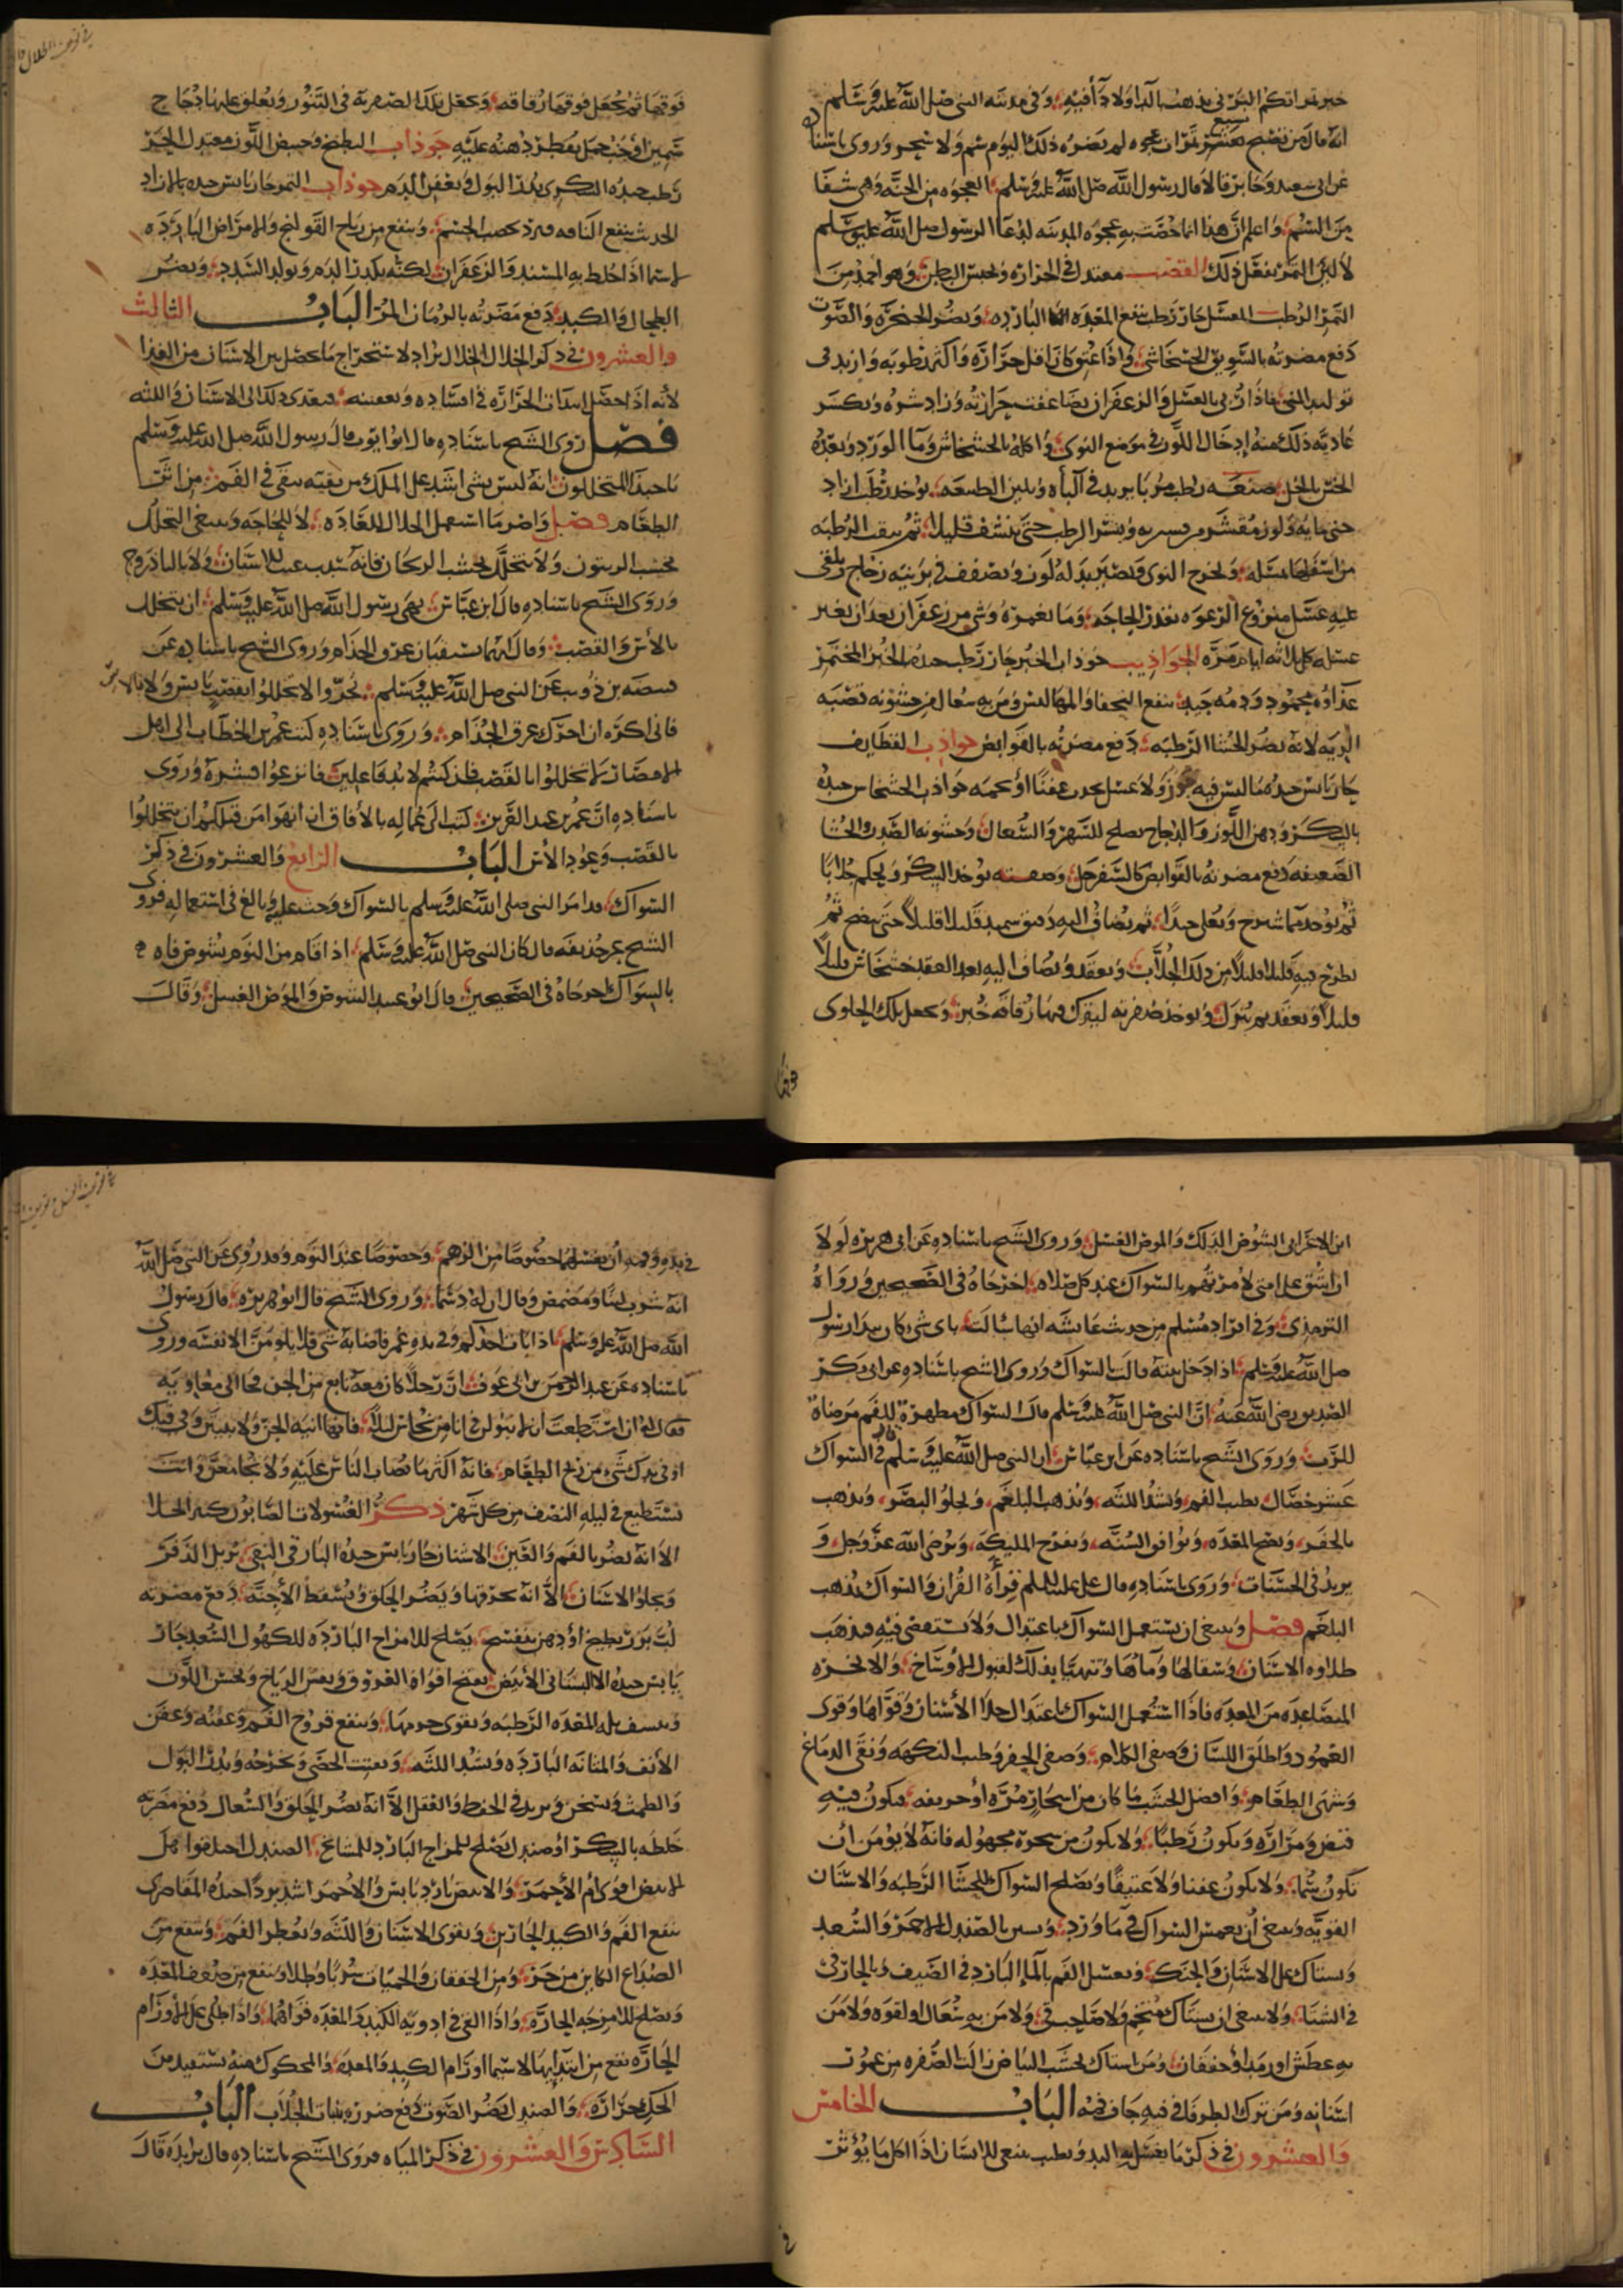 خير تمراتكم البرني يذهب بالداء ولا داء فيه وفي مدينه النبي صلى الله عليه وسلم
انه قال من تصبح بسبع تمرات عجوه لم يضره ذلك اليوم سم ولا سحر وروى باسناده
عن ابي سعيد وجابر قالا قال رسول الله صلى الله عليه وسلم العجوه من الجنه وهي شفا
من السم واعلم ان هذا انما خصت به عجوه المدينه لدعا الرسول صلى الله عليه وسلم
لا لان التمر يفعل ذلك القصب معتدل في الحراره ويحبس البطن وهو احمد من
التمر الرطب المعسل حار رطب ينفع المعده البارده ويضر الحنجره والصوت
دفع مضرته بالسويق الخشخاشي واذا عتق كان اقل حراره واكثر رطوبه وازيد في
توليد المني فاذا ربي بالعسل والزعفران تضاعفت حرارته وزاد شره ويكسر
عاديه ذلك منه ادخال اللوز في موضع النوى واكله بالخشخاش وما الورد وبعده
الخس بالخل صنعه رطب مربا يزيد في الباه ويلين الطبيعه يوخذ رطب ازاد
جني ولوز مقشر وينشر الرطب حتى ينشف قليلا ثم يثقب الرطبه
من اسفلها بمسله ويخرج النوى ويصير بدله لوز ويصفف في برنيه زجاج ويلقى
عليه عسل منزوع الرغوه بقدر الحاجه وما يغمره وشي من زعفران بعد ان يغير
عسله كل ثلاثه ايام مره الجواذيب جوذاب الخبز حار رطب جيده الخبز المختمر
غذاؤه محمود ودمه جيد ينفع النحفا ومن به سعال من خشونه قصبه
الريه لانه يضر الحشا الرطبه دفع مضرته بالقوابض جواذب القطايف
حار يابس جيده ما ليس فيه جوز ولا عسل جواذب الخشخاش جيده
بالسكر ودهن اللوز والدجاج يصلح للسهر والسعال وخشونه الصدر والحشا
الضعيفه دفع مضرته بالقوابض كالسفرجل وصفته يوخذ السكر ويحكم جلابا
ثم يوخذ ويغلى جيدا ثم يضاف اليه دقيق سميد قليلا قليلا حتى ينضج ثم
يطرح فيه قليلا قليلا من ذلك الجلاب ويعقد ويضاف اليه بعد العقد خشخاش قليلا
قليلا ويعقد ثم ينزل ويوخذ ليترك فيها رقاقه خبز ويجعل تلك الحلوى
فوقها
فوقها ثم يجعل فوقها رقاقه ويجعل تلك في التنور ويعلق عليها دجاج
سمين او جنب حمل يقطر دهنه عليه جوذاب البطيخ وحبيض اللون معتدل الحر
رطب جيده السكري يدر البول جوذاب التمر حار يابس جيده بالازاد
الحديث ينفع الناقه يخصب الجسم وينفع من رياح القولنج والامراض البارده
لا سيما اذا خلط به والزعفران لكنه يكدر الدم ويولد السدد ويضر
الطحال والكبد دفع مضرته بالرمان المر الباب الثالث
والعشرون في ذكر الخلال الخلال يراد لاستخراج ما يحصل بين الاسنان من الغذا
لانه اذا حصل اعان الحراره في افساده وتعفينه فيعدي ذلك الى الاسنان واللثه
فصل روى الشيخ باسناده قال ابو ايوب قال رسول الله صلى الله عليه وسلم
يا حبذا المتخللون انه ليس شي اشد على الملك من بقيه تبقى في الفم من اثر
الطعام فصل واضر ما استعمل الخلال للعاده لا للحاجه وينبغي التخلل
بخشب الزيتون ولا يتخلل بخشب الريحان فانه سبب عيب للاسنان ولا بالباذروج
وروى الشيخ باسناده قال ابن عباس نهى رسول الله صلى الله عليه وسلم ان يتخلل
بالاس والقصب وقال انهما يسقيان عرق الجذام وروى الشيخ باسناده عن
قبيصه بن ذويب عن النبي صلى الله عليه وسلم لا تخللوا بقضيب اس ولا
فاني اكره ان احرك عرق الجذام وروى باسناده كتب عمر بن الخطاب الى اهل
الامصار لا تخللوا بالقصب فان كنتم لا بد فاعلين فانزعوا قشره وروى
باسناده ان عمر بن عبد العزيز كتب الى عماله بالافاق ان انهوا من قبلكم ان يتخللوا
بالقصب وعود الاس الباب الرابع والعشرون في ذكر
السواك قد امر النبي صلى الله عليه وسلم بالسواك وحث عليه وبالغ في استعماله فروى
الشيخ عن حذيفه قال كان النبي صلى الله عليه وسلم اذا قام من النوم يشوص فاه
بالسواك اخرجاه في الصحيحين قال ابو عبيد الشوص والموص الغسل وقال
ابن الاعرابي الشوص الدلك والموص الغسل وروى الشيخ باسناده عن ابي هريره لولا
ان اشق على امتي لامرتهم بالسواك عند كل صلاه اخرجاه في الصحيحين ورواه
الترمذي وفي افراد مسلم من حديث عايشه انها سالت باي شي كان يبدا رسول
صلى الله عليه وسلم اذا دخل بيته قالت بالسواك وروى الشيخ باسناده عن ابي بكر
الصديق رضي الله عنه ان النبي صلى الله عليه وسلم قال السواك مطهرة للفم مرضاة
للرب وروى الشيخ باسناده عن ابن عباس ان النبي صلى الله عليه وسلم قال في السواك
عشر خصال يطيب الفم ويشد اللثه ويذهب البلغم ويجلو البصر ويذهب
بالحفر ويصح المعده ويوافق السنه ويفرح المليكه ويرضي الله عز وجل و
يزيد في الحسنات وروى باسناده قال علي عليه السلم قراة القران والسواك يذهب
البلغم فصل وينبغي ان يستعمل السواك باعتدال ولا يستقصي فيه فيذهب
طلاوه الاسنان وصقالها وماها وتتهيا بذلك لقبول الاوساخ والابخره
المتصاعده من المعده فاذا استعمل السواك باعتدال جلا الاسنان وقواها وقوى
العمور واطلق اللسان وصفى الكلام وصفى الحفر وطيب النكهه ونقى الدماغ
وشهى الطعام وافضل الخشب ما كان من اشجار مره او حريفه فيكون فيه
قبض ومراره ويكون رطبا ولا يكون من شجره مجهوله فانه لا يومن ان
تكون سما ولا يكون عفنا ولا عتيقا ويصلح السواك للحشا الرطبه والاسنان
القويه وينبغي ان يغمس السواك في ما ورد بالصندل الاحمر والسعد
ويستاك على الاسنان والحنك ويغسل الفم بالما البارد في الصيف وبالحار في
في الشتا ولا ينبغي ان يستاك متخم ولا صاحب قي ولا من به سعال او لقوه ولا من
به عطش او رمد او خفقان ومن استاك بخشب زالت الصفره من عمور
اسنانه ومن ترك الطرفا في فيه جاف فمه الباب الخامس
والعشرون في ذكر ما يغسل به اليد ويطيب ينبغي للانسان اذا اكل ما يؤثر
في يده وفمه ان يغسلهما خصوصا من الزهم وخصوصا عند النوم وقد روي عن النبي صلى الله
انه شرب لبنا ومضمض وقال ان له دسما وروى الشيخ قال ابو هريره قال رسول
الله صلى الله عليه وسلم اذا بات احدكم وفي يده غمر فاصابه شي فلا يلومن الا نفسه وروى
باسناده عن عبد الرحمن بن ابي عوف ان رجلا كان معه تابع من الجن فجا الى معاويه
فقال له ان استطعت ان لا تبول في انا من نحاس ليلا فانها انيه الجن ولا تبيتن وفي فيك
او في يدك شي من ريح الطعام فانه اكثر ما تصاب الناس عليه ولا تجامعن وانت
تستطيع في ليله النصف من كل شهر ذكر الغسولات الصابون كثير الجلا
الا انه يضر بالفم والعين الاشنان حار يابس جيده البارقي النقي يزيل الذفر
ويجلو الاسنان الا انه يحرقها ويضر الحلق ويسقط الاجنه دفع مضرته
لب بزر بطيخ او دهن بنفسج يصلح للامزاج البارده للكهول السعد حار
يابس جيده الابيض يفتح افواه العروق ويفش الرياح ويحسن اللون
وينشف بله المعده الرطبه ويقوي جرمها وينفع قروح الفم وعفنه وعفن
الانف والمثانه البارده ويشد اللثه ويفتت الحصى ويخرجه ويدر البول
والطمث ويسخن ويزيد في الحفظ والعقل الا انه يضر الحلق والسعال دفع مضرته
خلطه بالسكر او صندل يصلح للمزاج البارد للمشايخ الصندل اختلفوا هل
الابيض اقوى ام الاحمر والابيض بارد يابس والاحمر اشد بردا جيده المقاصري
ينفع الفم والكبد الحارين ويقوي الاسنان واللثه ويعطر الفم وينفع من
الصداع الكاين من حر ومن الخفقان والحميات شربا وطلا وينفع من ضعف المعده
ويصلح للامزجه الحاره واذا القي في ادويه الكبد والمعده قواهما واذا طلي على الاورام
الحاره نفع من ابتدايها لاسيما اورام الكبد والمعده والمحكوك منه يستفيد من
الحك حراره والصندل يضر الصوت دفع ضرره بنبات الجلاب الباب
السادس والعشرون في ذكر المياه فروى الشيخ باسناده قال بريده قال